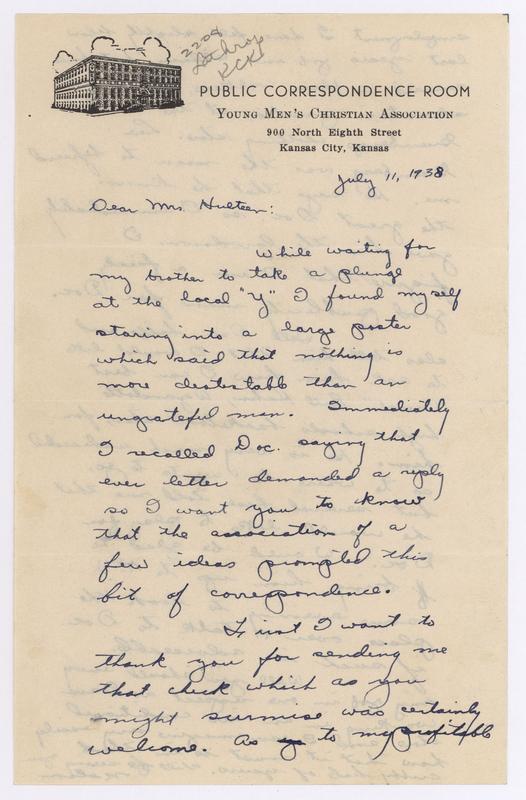 2208
Lathrop
KCK
PUBLIC CORRESPONDENCE ROOM
YOUNG MEN'S CHRISTIAN ASSOCIATION
900 North Eighth Street
Kansas City, Kansas
July 11, 1938
Dear Mrs. Hulteen:
While waiting for
my brother to take a plunge
at the local "Y" I found myself
staring into a large poster
which said that nothing is
more destestable than an
ungrateful man. Immediately
I recalled Doc. saying that
ever letter demanded a reply
so I want you to know
that the association of a
few ideas prompted this
bit of correspondence.
First I want to
thank you for sending me
that check which as you
might surmise was certainly
welcome. As to my profitable